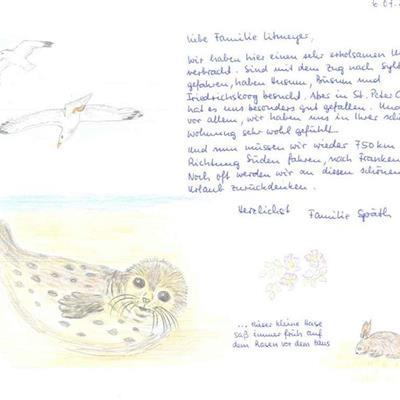 6.07.
Liebe Familie Litmeyer,
wir haben hier einen sehr erholsamen U
verbracht. Sind mit dem Zug nach Sylt
gefahren, haben Husum, Büsum und
Friedrichskoog besucht. Aber in St. Peter O
hat es uns besonders gut gefallen. Und
vor allem, wir haben uns in Ihrer schö
Wohnung sehr wohl gefühlt.
Und nun müssen wir wieder 750 km
Richtung Süden fahren, nach Franken.
Noch oft werden wir an diesen schönen
Urlaub zurückdenken.
Herzlichst Familie Späth
... dieser kleine Hase
saß immer früh auf
dem Rasen vor dem Haus